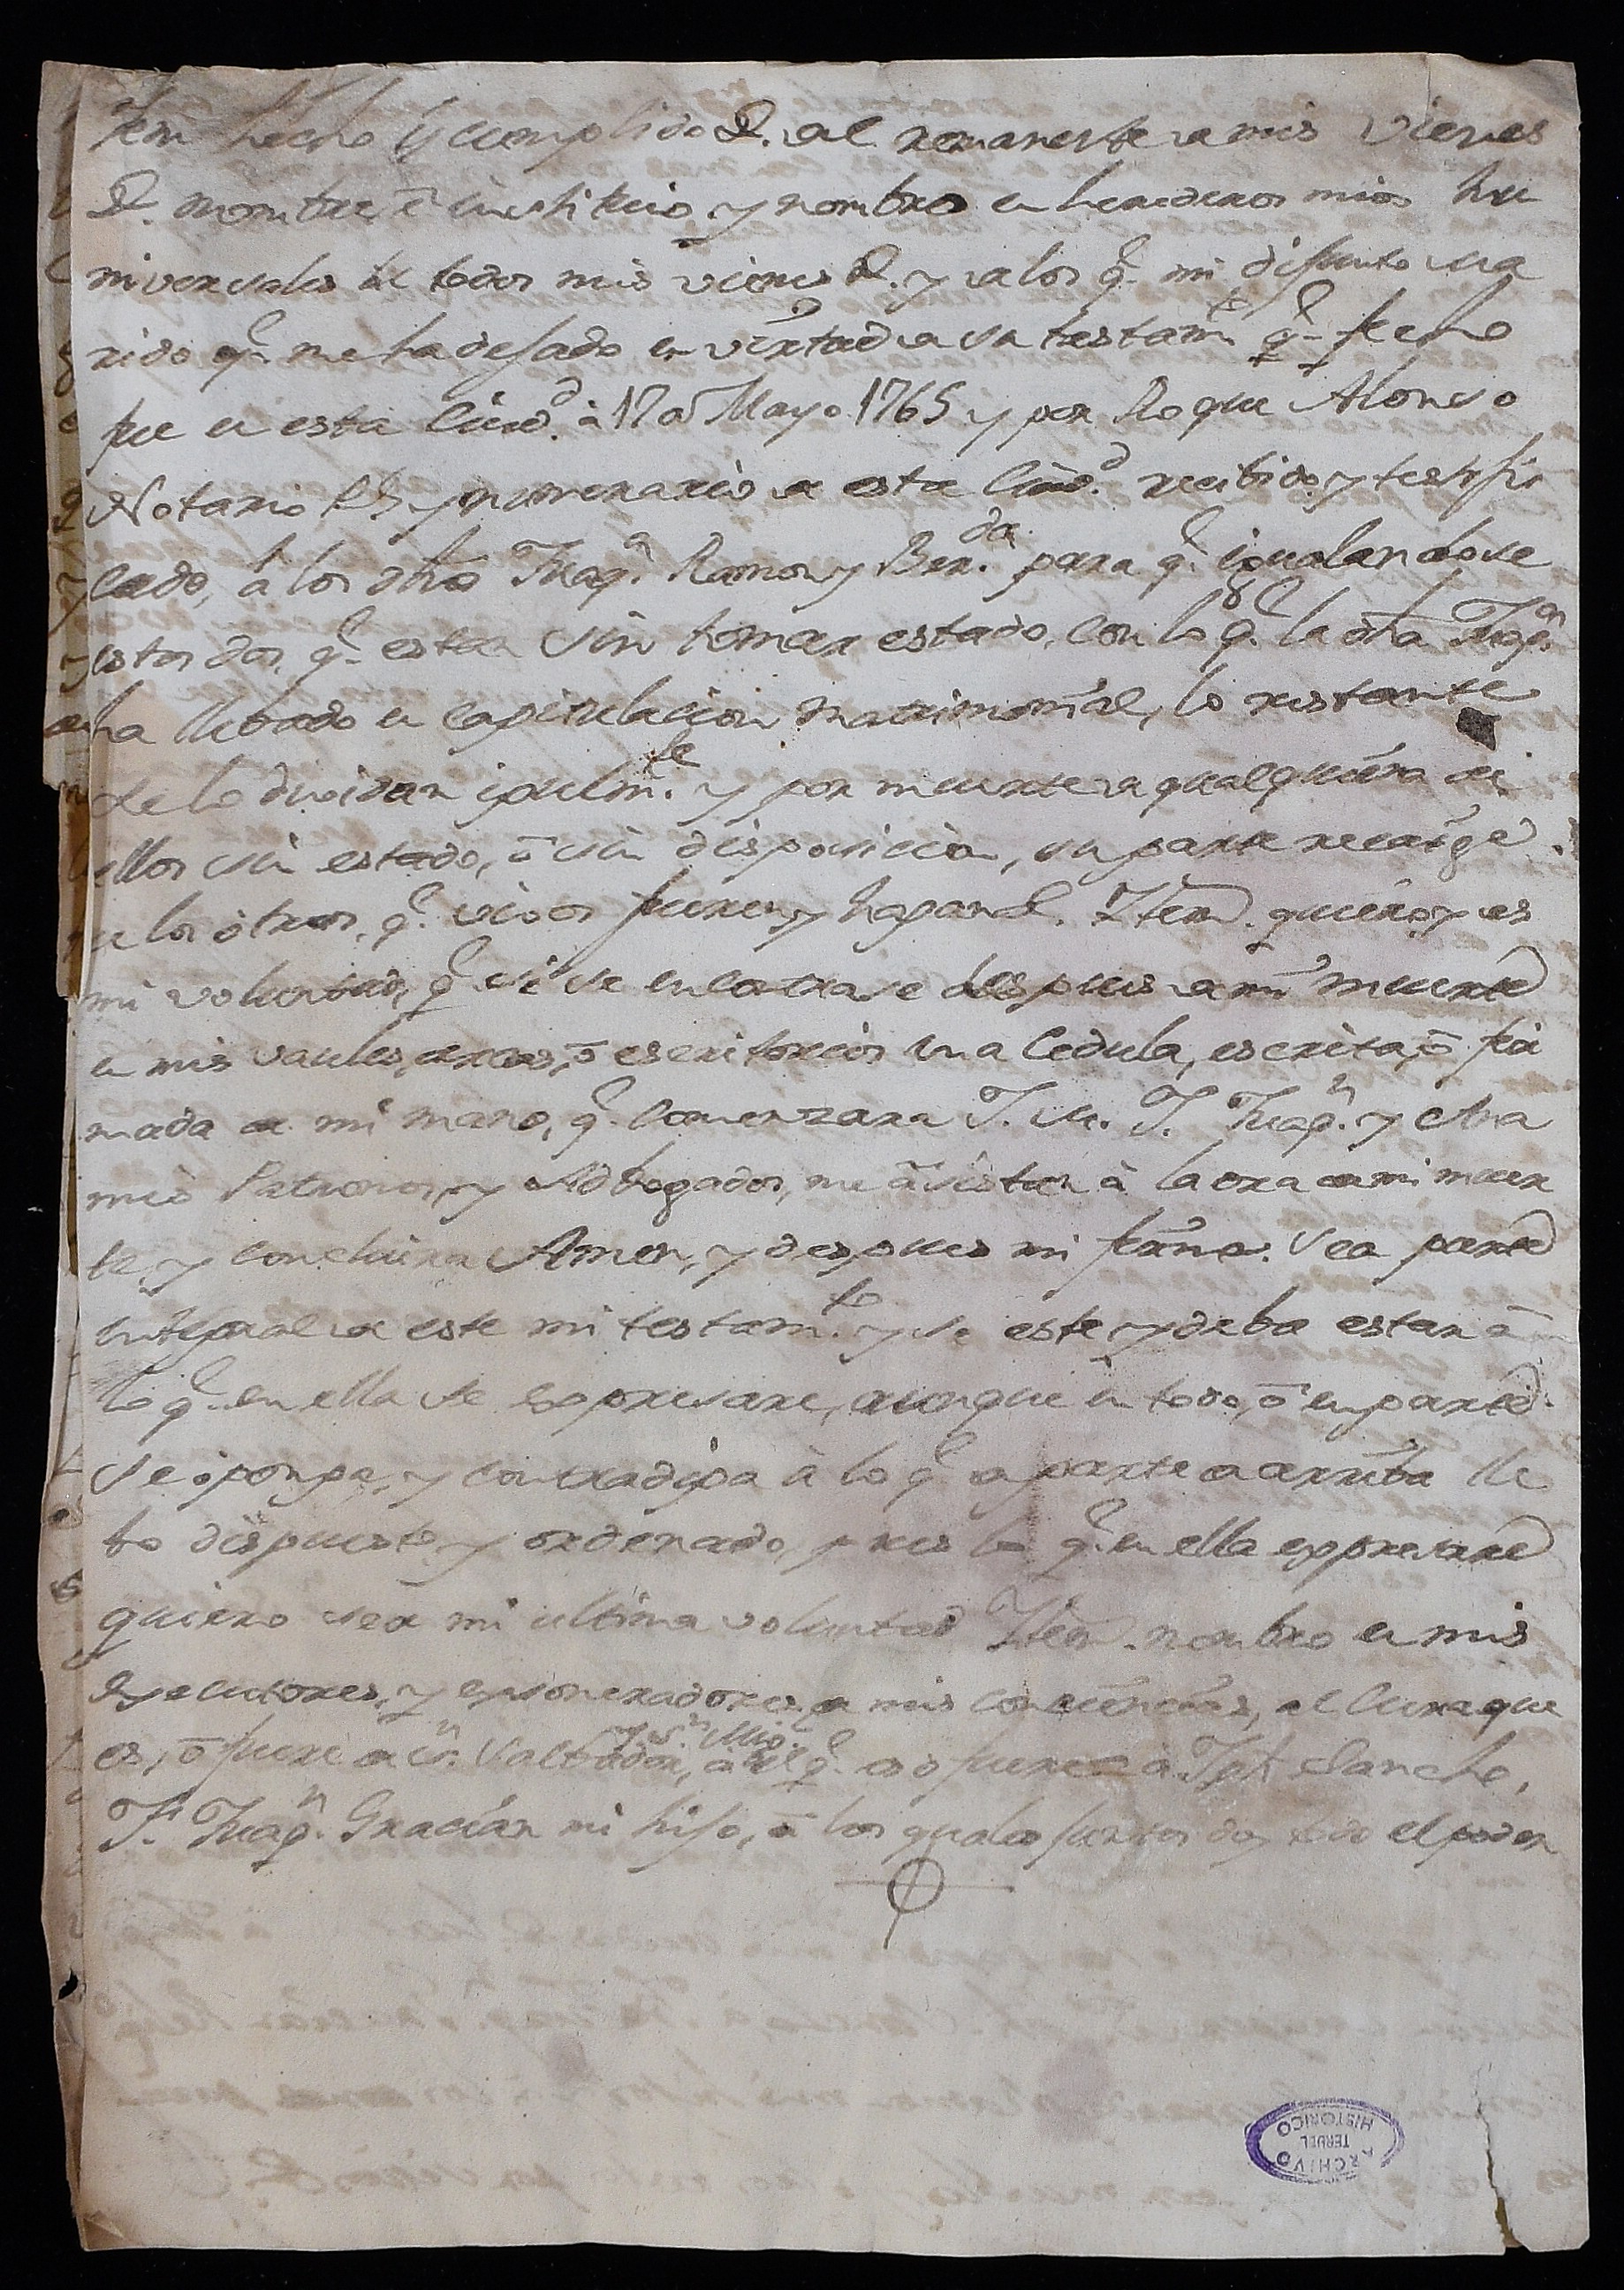 Item hecho y cumplido &. al remanente a mis vienes
&. nombre è instituio y nombro en herederos mios hu
niversales de todos mis vienes &. y a los q.e mi difunto ma
rido q.e me ha dejado en virtud a su testam.to q.e fecho
fue en esta Ciud.d à 17 a Mayo 1765 y por Roque Alonso
Notario Rl. y numerario a esta Ciud.d recibido, y testifi
cado, à los dhos Juaq.n Ramon y Ber.da para q.e igualandose
estos dos, q.e estan sin tomar estado, con lo q.e la dha Juaq.n
ha llebado en capitulacion matrimonial, lo restante
se lo dividan igualm.te y por muerte a qualquiera de
ellos sin estado, ò sin disposicion, su parte recaige
en los otros, q.e vivos fueren y hagan &. Item. quiero y es
mi voluntad, q.e si se encontrase despues a mi muerte
en mis vaules, arcas, ò escritorios una Cedula, escrita, ò fir
mada a mi mano, q.e comenzara J. M. J. Juaq.n y Ana
mis Patronos, y Abbogados, me asistan à la ora a mi muer
te, y concluira Amen, y despues mi firma. Sea parte
integral a este mi testam.to y se este y deba estar à
lo q.e en ella se expresare, aunque en todo, ò en parte
se oponga, y contradiga à lo q.e a parte a arriba lle
bo dispuesto y ordenado, pues lo q.e en ella expresare
quiero sea mi ultima voluntad Item. nombro en mis
exsecutores, y exsoneradores a mis conciencias, al Cura que
es, ò fuere a S.n Salbador, à el q.e es o fuere a S.n Mig.l à Jph Sancho,
F. Juaq.n Gracián mi hijo, à los quales juntos doy todo el poder
ARCHIVO
HISTORICO
TERUEL